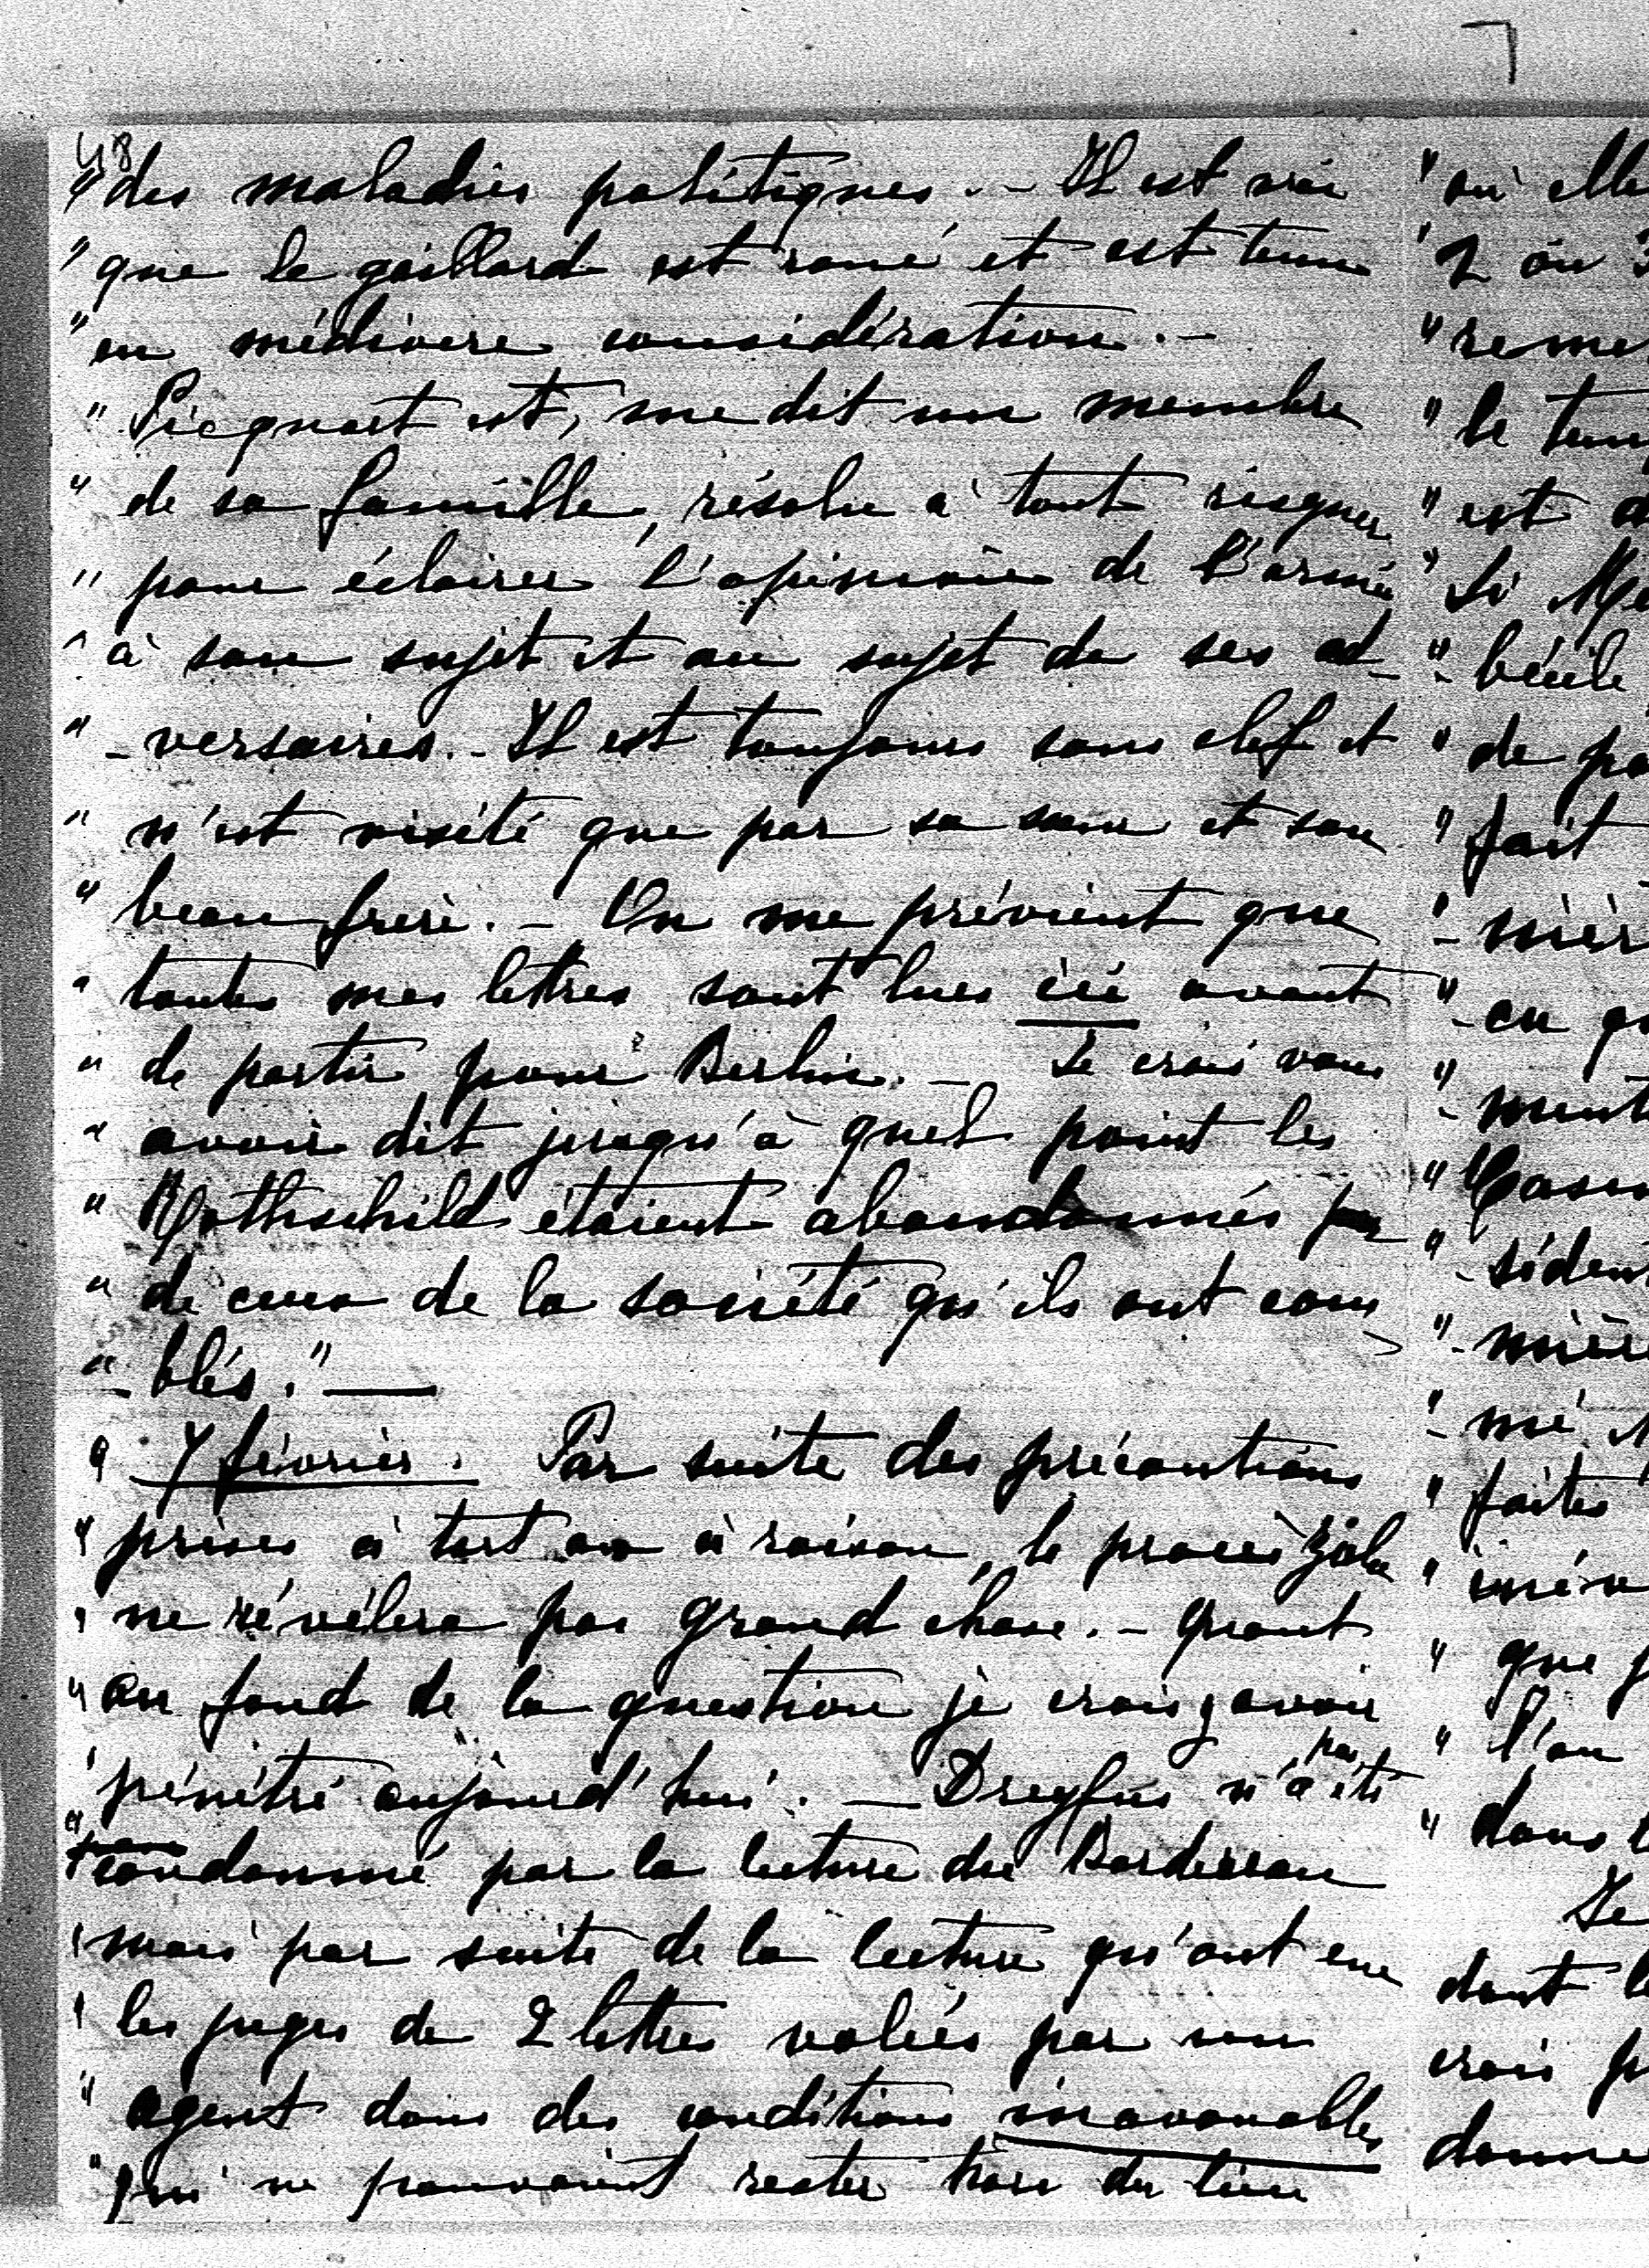 48
"des maladies politiques. - Il est vrai
"que le gaillard est roué et est tenu
"en médiocre considération. -
"Picquart est, me dit un membre
"de sa famille, résolu à tout risquer
"pour éclairer l'opinion de l'armée
"à son sujet et au sujet de ses ad-
"-versaires. - Il est toujours sous clef et
"n'est visité que par sa sœur et son
"beau frère. - On me prévient que
"toutes mes lettres sont lues ici avant
"de partir pour Berlin. - Je crois vous
"avoir dit jusqu'à quel point les
"Rothschild étaient abandonnés par
"de ceux de la société qu'ils ont com
"-blés." —
"7 février. Par suite des précautions
"prises à tort ou à raison, le procès Zola
"ne révélera pas grand chose. - Quant
"au fond de la question je crois y avoir
"pénétré aujourd'hui. — Dreyfus n'a pas été
"condamné par la lecture du Bordereau
"mais par suite de la lecture qu'ont eue
"les juges de 2 lettres volées par un
"agent dans des conditions inavouables
"qui ne pouvaient rester hors du lieu
"où elle
"2 ou 3
"reme
"le tem
"est a
"Si Mé
"-bécile
"de pa
"fait
"-nièr
"-cu
"-ment
"Casim
"-siden
"-mièr
"-mé
"faites
"inév
"que
"l'on
"dans l
Je
dont l
crois p
donne